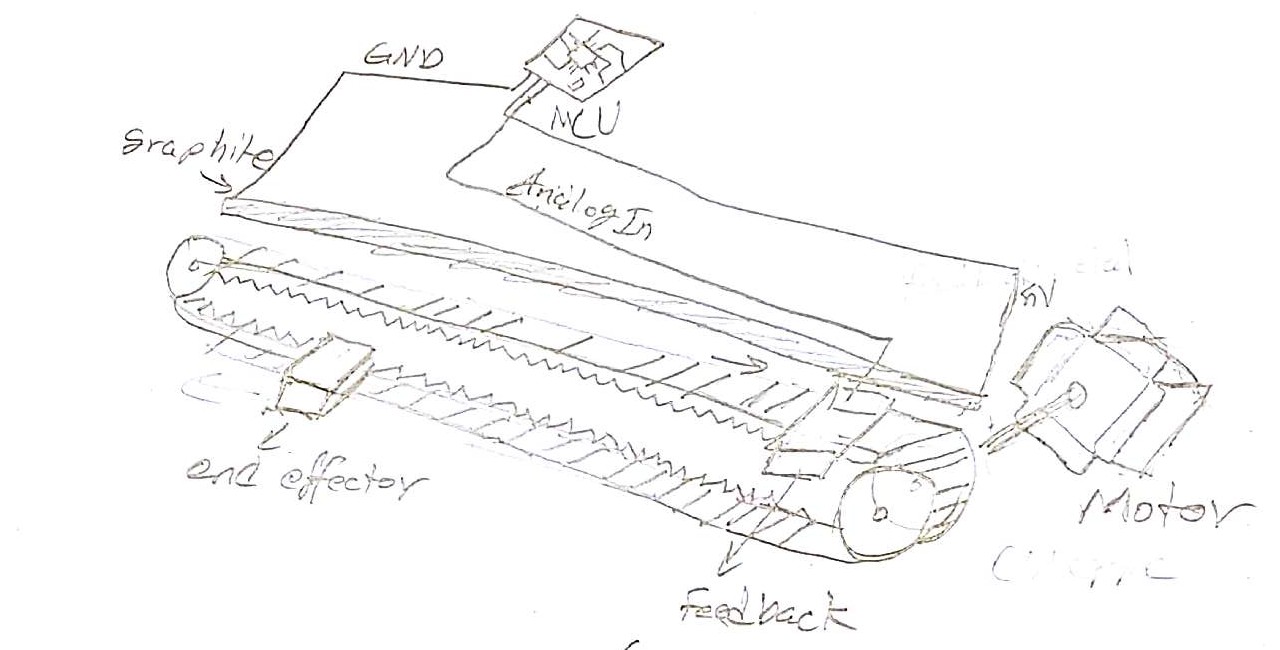 GND
MCU
Graphite
Analog In
5V
end effector
Motor
Feedback